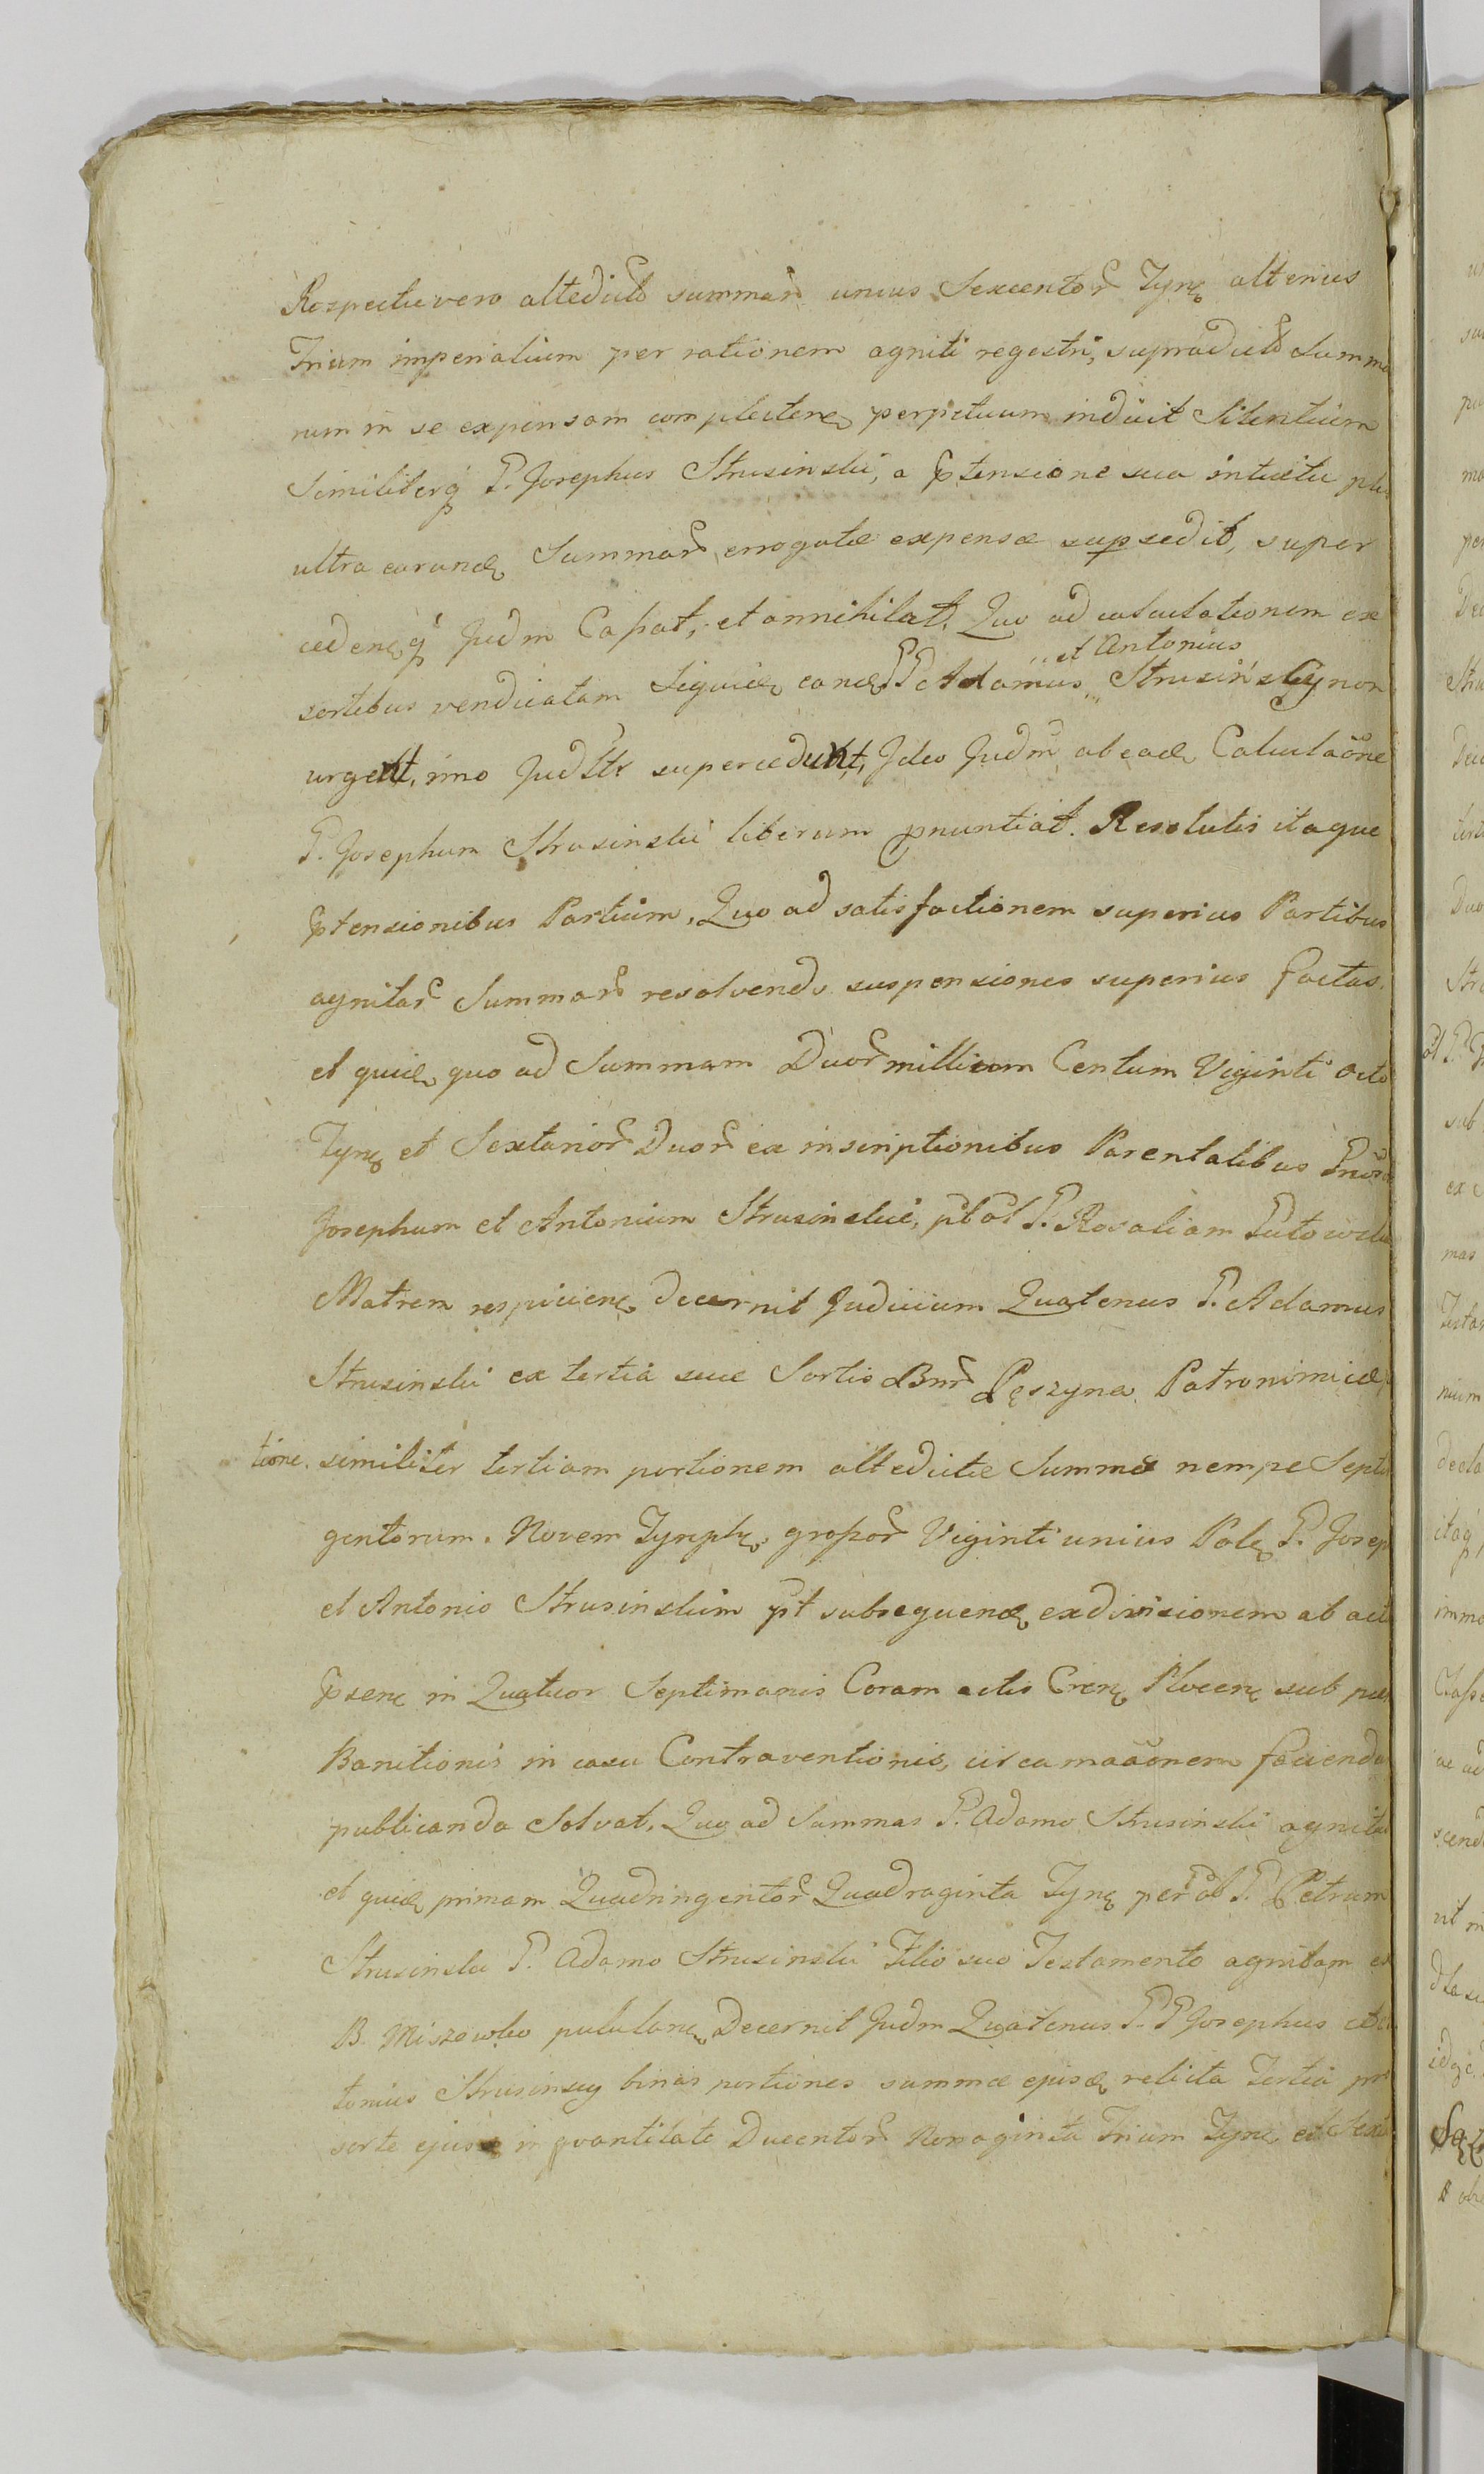 Respectu vero altedict summar unius Sexcentor Tynę alterius
Trium imperialium per rationem agniti regestri, supradict Summa
rum in se expensam complecten perpetuum indicit Silentium
Similiterq P. Josephus Strusinski, a Ptensione sua intuitu
ultra earund Summar, errogatæ expensæ supsedit, super
cedenq Judm Cassat, et annihilat. Quo ad calculationem ex
et Antonius
sortibus vendicatam Siquid eand PP Adamus Strusińscy non
urgent, imo supercedunt, Ideo Judm ab ead Calculaõne
P. Josephum Strusinski liberum pnuntiat. Resolutis itaque
Ptensionibus Partium, Quo ad satisfactionem superius Partibus
agnitar Summar resolvendo suspensiones superius factas.
et quid quo ad Summam Duor millium Centum Viginti octo
Tynę et Sextarior Duor ex inscriptionibus Parentalibus
Josephum et Antonium Strusinskie, P. Rosaliam
Matrem respicien decernit Judicium Quatenus P. Adamus
Strusinski ex tertia suæ Sortis Bnr Pęszyna Patronimicæ
tione. similiter tertiam portionem altedictæ Summæ nempe Septi
gentorum. Novem Tymph, grossor Viginti unius Pol P. Josep
et Antonio Strusinskim pt subsequend exdivisionem ab act
Psenę in Quatuor Septimanis Coram actis Crenę Plocenę sub
Banitionis in casu Contraventionis, circa maãonem facienda
publicanda Solvat. Quo ad Summas P. Adamo Strusinski agnitas
et quid primam Quadringentor Quadraginta Tynę per ol P. Petrum
Strusinski P. Adamo Strusinski Filio suo Testamento agnitam ex
B. Miszewko pululanę Decernit Judm Quatenus P. P Josephus et
tonius Strusinscy binas portiones summæ ejusd relicta Tertia
sorte ejusd in quantitate Ducentor Nonaginta Trium Tynę et Sext